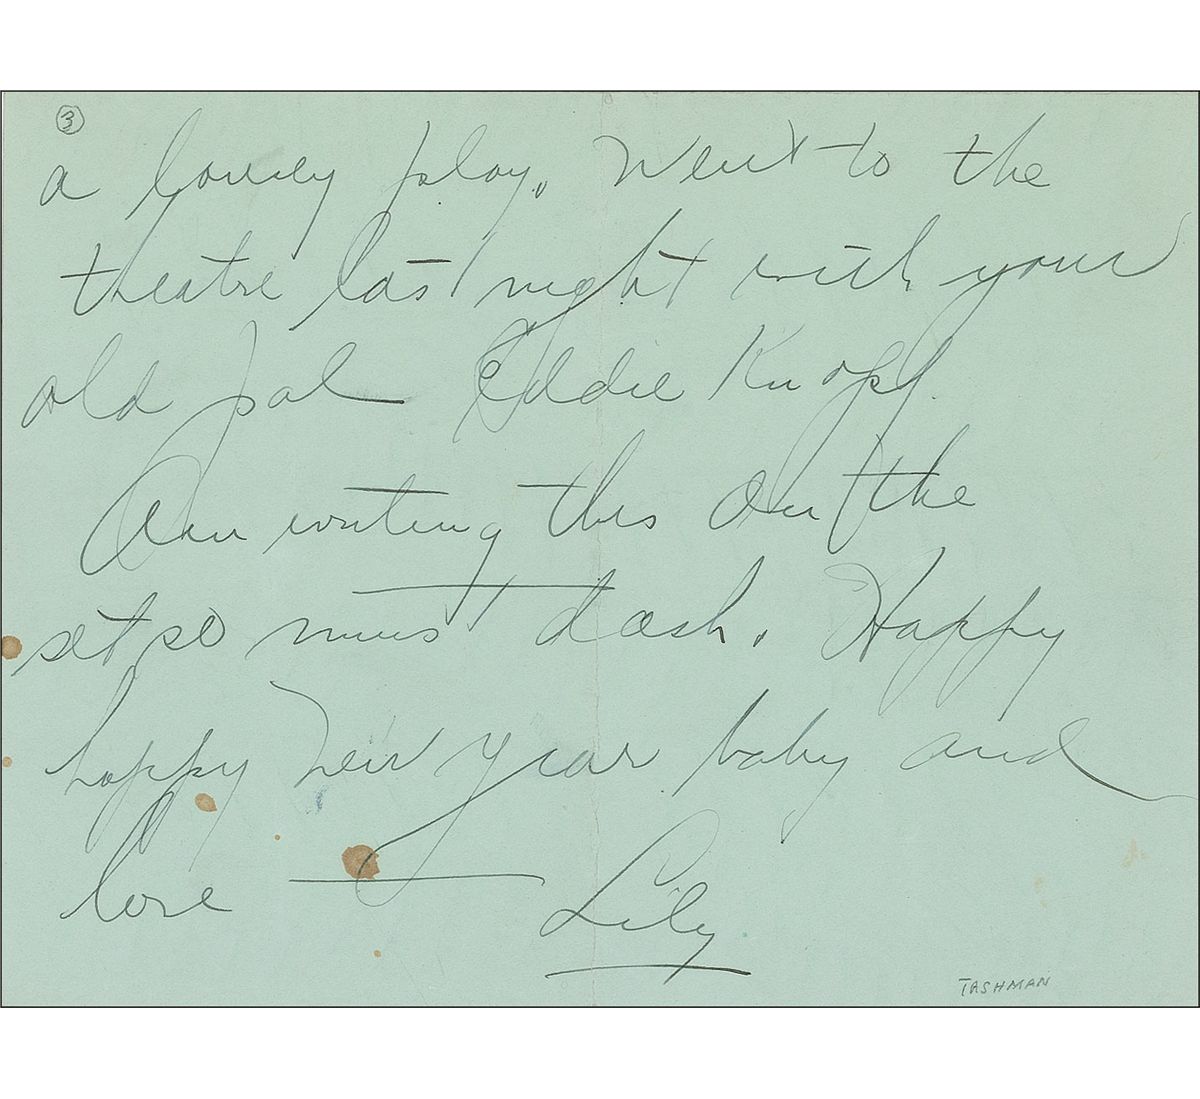 3
a lousey play. Went to the
theatre last night with your
old pal Eddie Knopf.
Am writing this on the
set so must dash. Happy
happy New Year baby and
love
Lily
TASHMAN